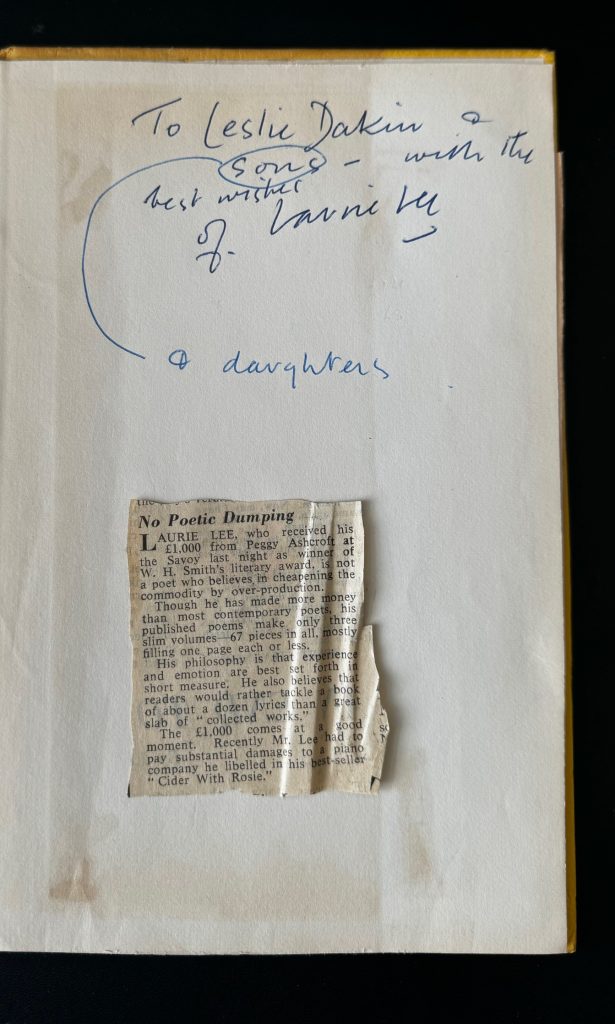 To Leslie Dakin &
sons – with the
best wishes
of. Laurie Lee
& daughters
No Poetic Dumping
LAURIE LEE, who received his
£1,000 from Peggy Ashcroft at
the Savoy last night as winner of
W. H. Smith's literary award, is not
a poet who believes in cheapening the
commodity by over-production.
Though he has made more money
than most contemporary poets, his
published poems make only three
slim volumes—67 pieces in all, mostly
filling one page each or less.
His philosophy is that experience
and emotion are best set forth in
short measure. He also believes that
readers would rather tackle a book
of about a dozen lyrics than a great
slab of "collected works."
The £1,000 comes at a good
moment. Recently Mr. Lee had to
pay substantial damages to a piano
company he libelled in his best-seller
"Cider With Rosie."